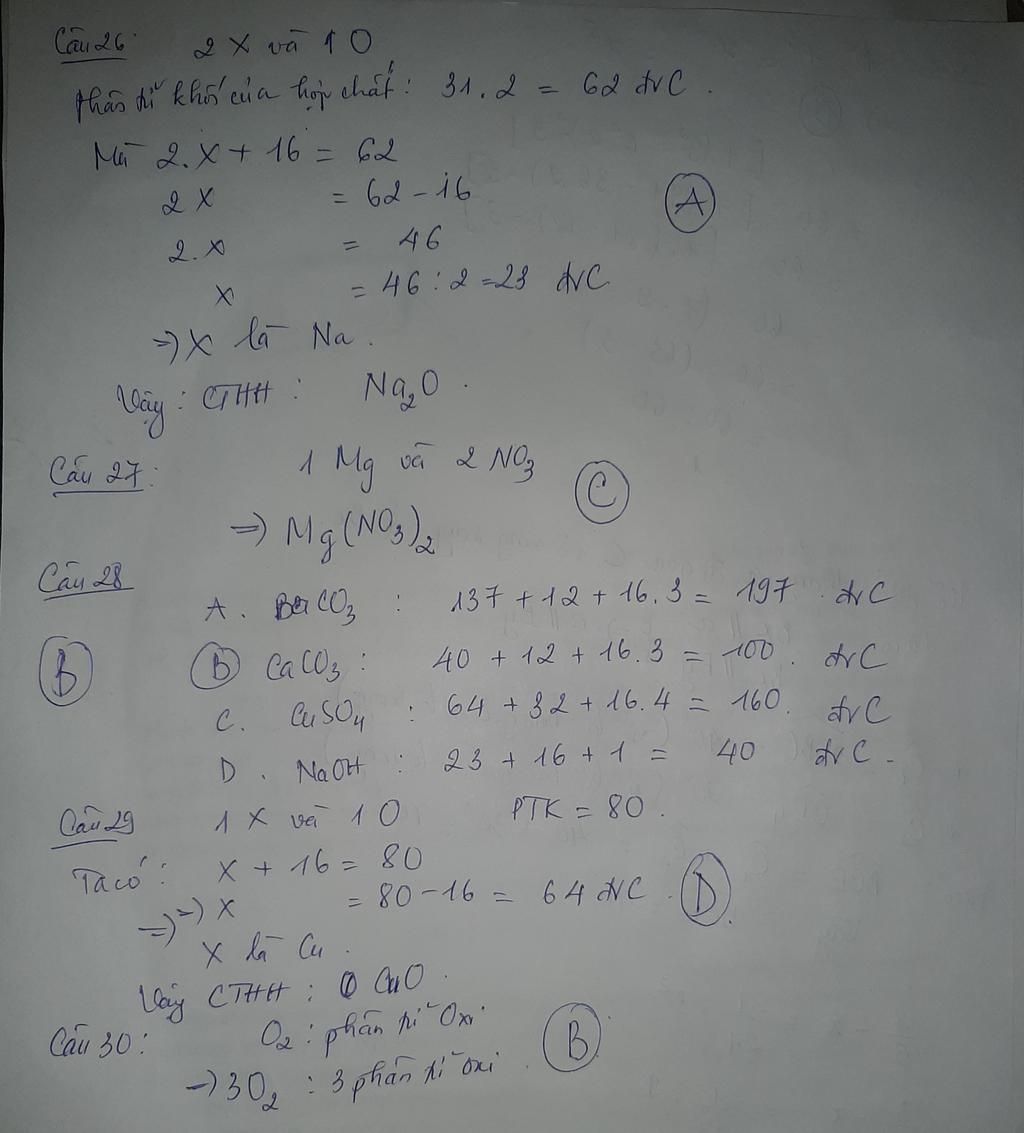 Câu 26: 2 X và 1 O
phân tử khối của hợp chất: 31.2 = 62 đvC.
Mà 2.X + 16 = 62
2 X = 62 - 16
2.X = 46
X = 46 : 2 = 23 đvC
=> X là Na.
Vậy: CTHH: Na2O.
(A)
Câu 27: 1 Mg và 2 NO3
=> Mg(NO3)2
(C)
Câu 28
A. BaCO3 : 137 + 12 + 16.3 = 197 đvC
(B) CaCO3 : 40 + 12 + 16.3 = 100. đvC
C. CuSO4 : 64 + 32 + 16.4 = 160. đvC
D. NaOH : 23 + 16 + 1 = 40 đvC.
(B)
Câu 29 1 X và 1 O PTK = 80.
Ta có: X + 16 = 80
=> => X = 80 - 16 = 64 đvC. (D)
X là Cu.
Vậy CTHH: CuO.
Câu 30: O2 : phân tử Oxi
=> 3O2 : 3 phân tử oxi.
(B)